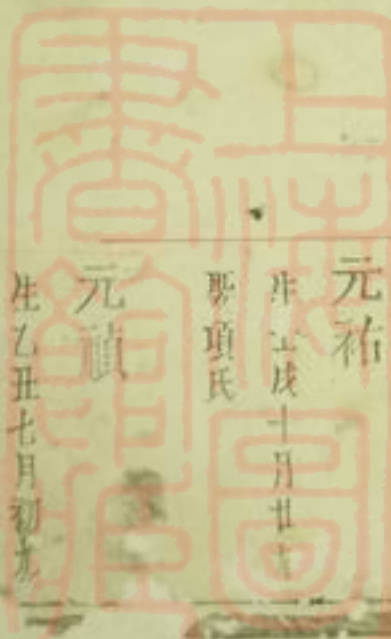 元祐
生壬戌十月廿
聘項氏
元禎
生乙丑七月初九
上海圖書館藏